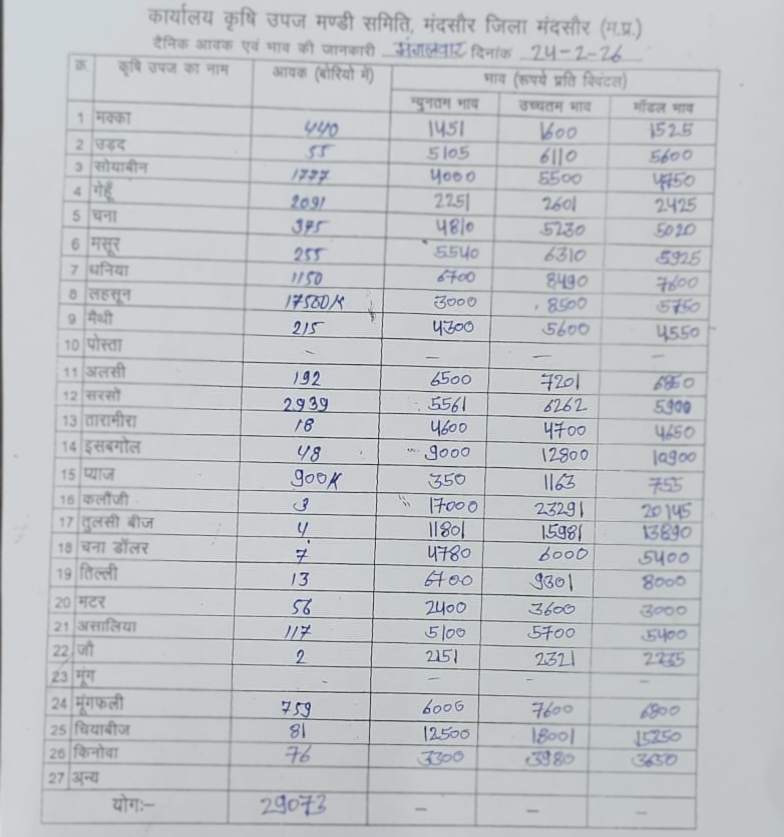 कार्यालय कृषि उपज मण्डी समिति, मंदसौर जिला मंदसौर (म.प्र.)
दैनिक आवक एवं भाव की जानकारी मंगलवार दिनांक 24-2-26
क्र. कृषि उपज का नाम आवक (बोरियो में) भाव (रूपये प्रति क्विंटल)
न्युनतम भाव उच्चतम भाव मॉडल भाव
1 मक्का 440 1451 1600 1525
2 उड़द 55 5105 6110 5600
3 सोयाबीन 1777 4000 5500 4750
4 गेहूँ 2091 2251 2601 2425
5 चना 375 4810 5230 5020
6 मसूर 255 5540 6310 5925
7 धनिया 1150 6700 8490 7600
8 लहसून 17500/K 3000 8500 5750
9 मैथी 215 4300 5600 4550
10 पोस्ता – – – –
11 अलसी 192 6500 7201 6850
12 सरसो 2939 5561 6262 5900
13 तारामीरा 18 4600 4700 4650
14 इसबगोल 48 9000 12800 10900
15 प्याज 900K 350 1163 755
16 कलौंजी 3 17000 23291 20145
17 तुलसी बीज 4 11801 15981 13890
18 चना डॉलर 7 4780 6000 5400
19 तिल्ली 13 6700 9301 8000
20 मटर 56 2400 3600 3000
21 असालिया 117 5100 5700 5400
22 जौ 2 2151 2321 2235
23 मूंग - – – –
24 मूंगफली 759 6006 7600 6800
25 चियाबीज 81 12500 18001 15250
26 किनोवा 76 3300 3980 3630
27 अन्य
योग:– 29073 – – –